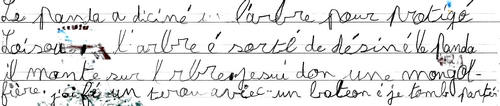 Le panda a déciné l'arbre pour protigé
Loisou l'arbre é sorti de désiné le panda
il monte sur l'rbre jesui don une mongol-
fière. j'ai fé un terou avec un bateon é je tombe parti